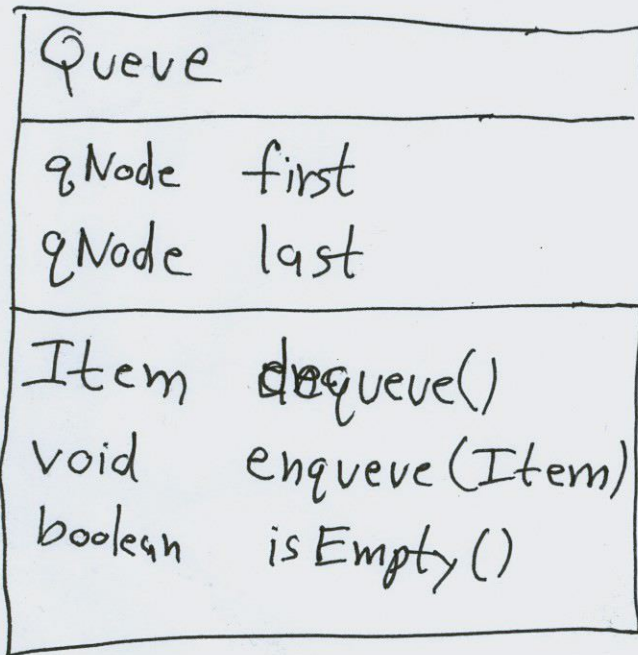 Queue
qNode first
qNode last
Item dequeue()
void enqueue(Item)
boolean isEmpty()